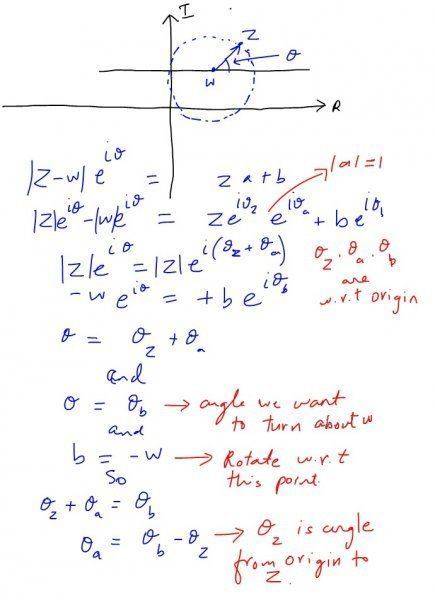 I
Z
θ
W
R
|Z-w| e^{iθ} = z a + b
|a|=1
|z|e^{iθ} - |w|e^{iθ} = z e^{iθ_2} e^{iθ_a} + b e^{iθ_1}
|z| e^{iθ} = |z| e^{i(θ_z + θ_a)}
θ_z . θ_a . θ_b
are
w.r.t origin
- w e^{iθ} = + b e^{iθ_b}
θ = θ_z + θ_a
and
θ = θ_b → angle we want
to turn about w
and
b = - w → Rotate w.r.t
this point.
So
θ_z + θ_a = θ_b
θ_a = θ_b - θ_z → θ_z is angle
from origin to
Z.